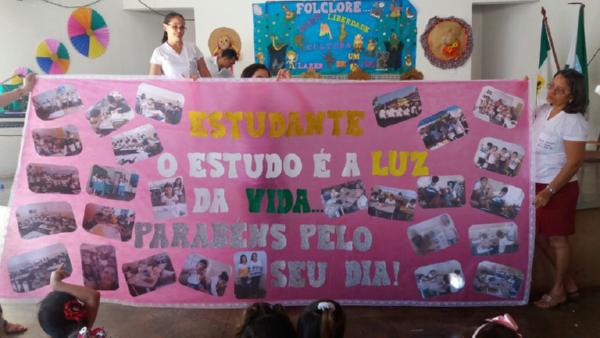 FOLCLORE...
LIBERDADE
CULTURA
LAZER
UM
ESTUDANTE
O ESTUDO É A LUZ
DA VIDA...
PARABÉNS PELO
SEU DIA!